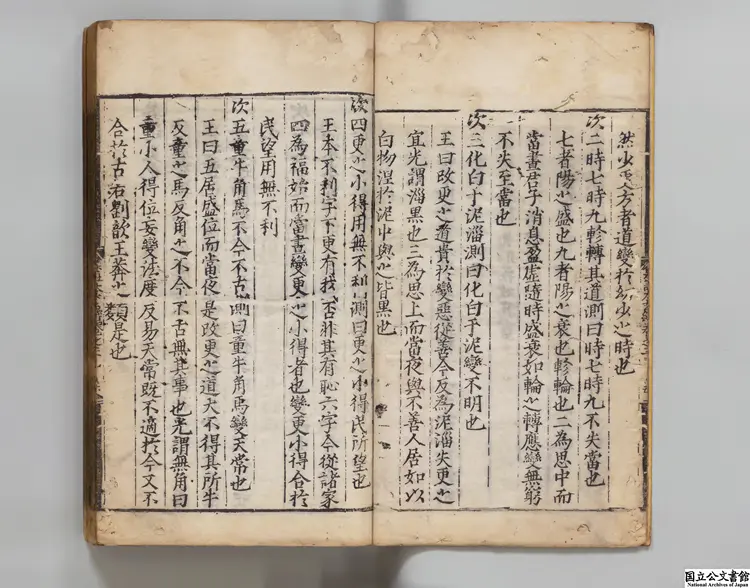 然少之方者道變於幼少之時也
次二時七時九軫轉其道測曰時七時九不失當也
七者陽之盛也九者陽之衰也軫輪也二為思中而
當晝君子消息盈虚隨時盛衰如輪之轉應變無窮
不失至當也
次三化白于泥淄測曰化白于泥變不明也
王曰改更之道貴於變惡從善今反為泥淄失更之
宜光謂淄黑也三為思上而當夜與不善人居如以
白物涅於泥中與之皆黑也
次四更之小得用無不利測曰更之小得民所望也
王本不利字下更有我否非其有恥六字今從諸家
四為福始而當晝變更之小得者也變更小得合於
民望用無不利
次五童牛角馬不今不古測曰童牛角馬變天常也
王曰五居盛位而當夜是改更之道大不得其所牛
反童之馬反角之不今不古無其事也光謂無角曰
童小人得位妄變法度反易天常既不適於今又不
合於古若劉歆王莽之類是也
国立公文書館
National Archives of Japan